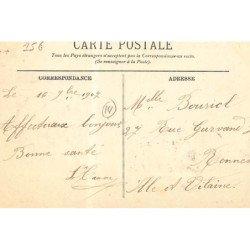 956
CARTE POSTALE
Tous les Pays étrangers n'acceptent pas la Correspondance au recto.
(Se renseigner à la Poste).
CORRESPONDANCE
ADRESSE
Le 16 7bre 1907
Affectueux bonjours
Bonne santé
Melle Bouriol
27 Rue Gurvand
Rennes
Ille et Vilaine